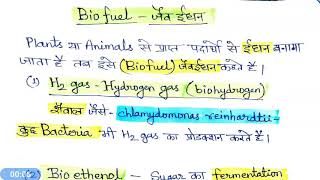 Biofuel - जैव ईंधन
Plants या Animals से प्राप्त पदार्थों से ईंधन बनाया
जाता है तब इसे (Biofuel) जैवईंधन कहते हैं।
(1) H2 gas - Hydrogen gas (biohydrogen)
शैवाल जैसे - chlamydomonas reinhardtii
कुछ Bacteria भी H2 gas का प्रोडक्शन करते हैं।
Bio ethenol - Sugar का fermentation